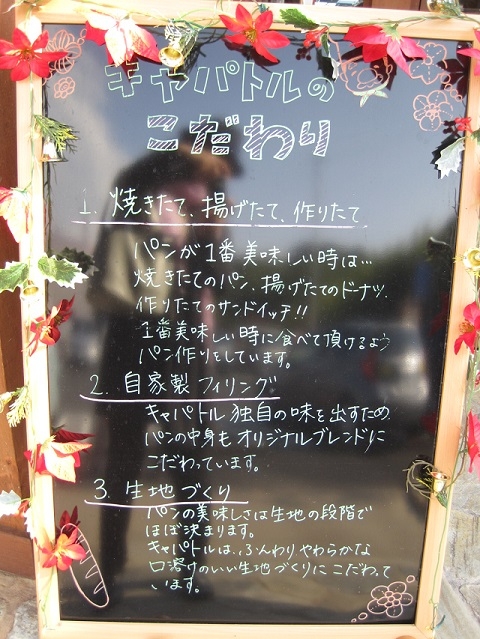 キャパトルの
こだわり
1. 焼きたて、揚げたて、作りたて
パンが1番美味しい時は…
焼きたてのパン、揚げたてのドーナツ、
作りたてのサンドイッチ!!
1番美味しい時に食べて頂けるよう
パン作りをしています。
2. 自家製フィリング
キャパトル独自の味を出すため
パンの中身もオリジナルブレンドに
こだわっています。
3. 生地づくり
パンの美味しさは生地の段階で
ほぼ決まります。
キャパトルは、ふんわりやわらかな
口溶けのいい生地づくりにこだわって
います。